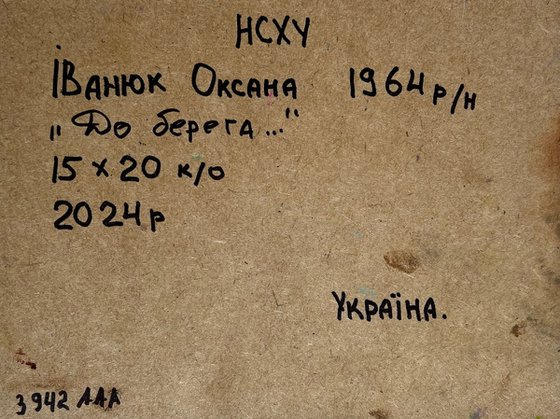 НСХУ
Іванюк Оксана 1964 р/н
„До берега..."
15 х 20 к/о
2024р
Україна.
3942 ААА